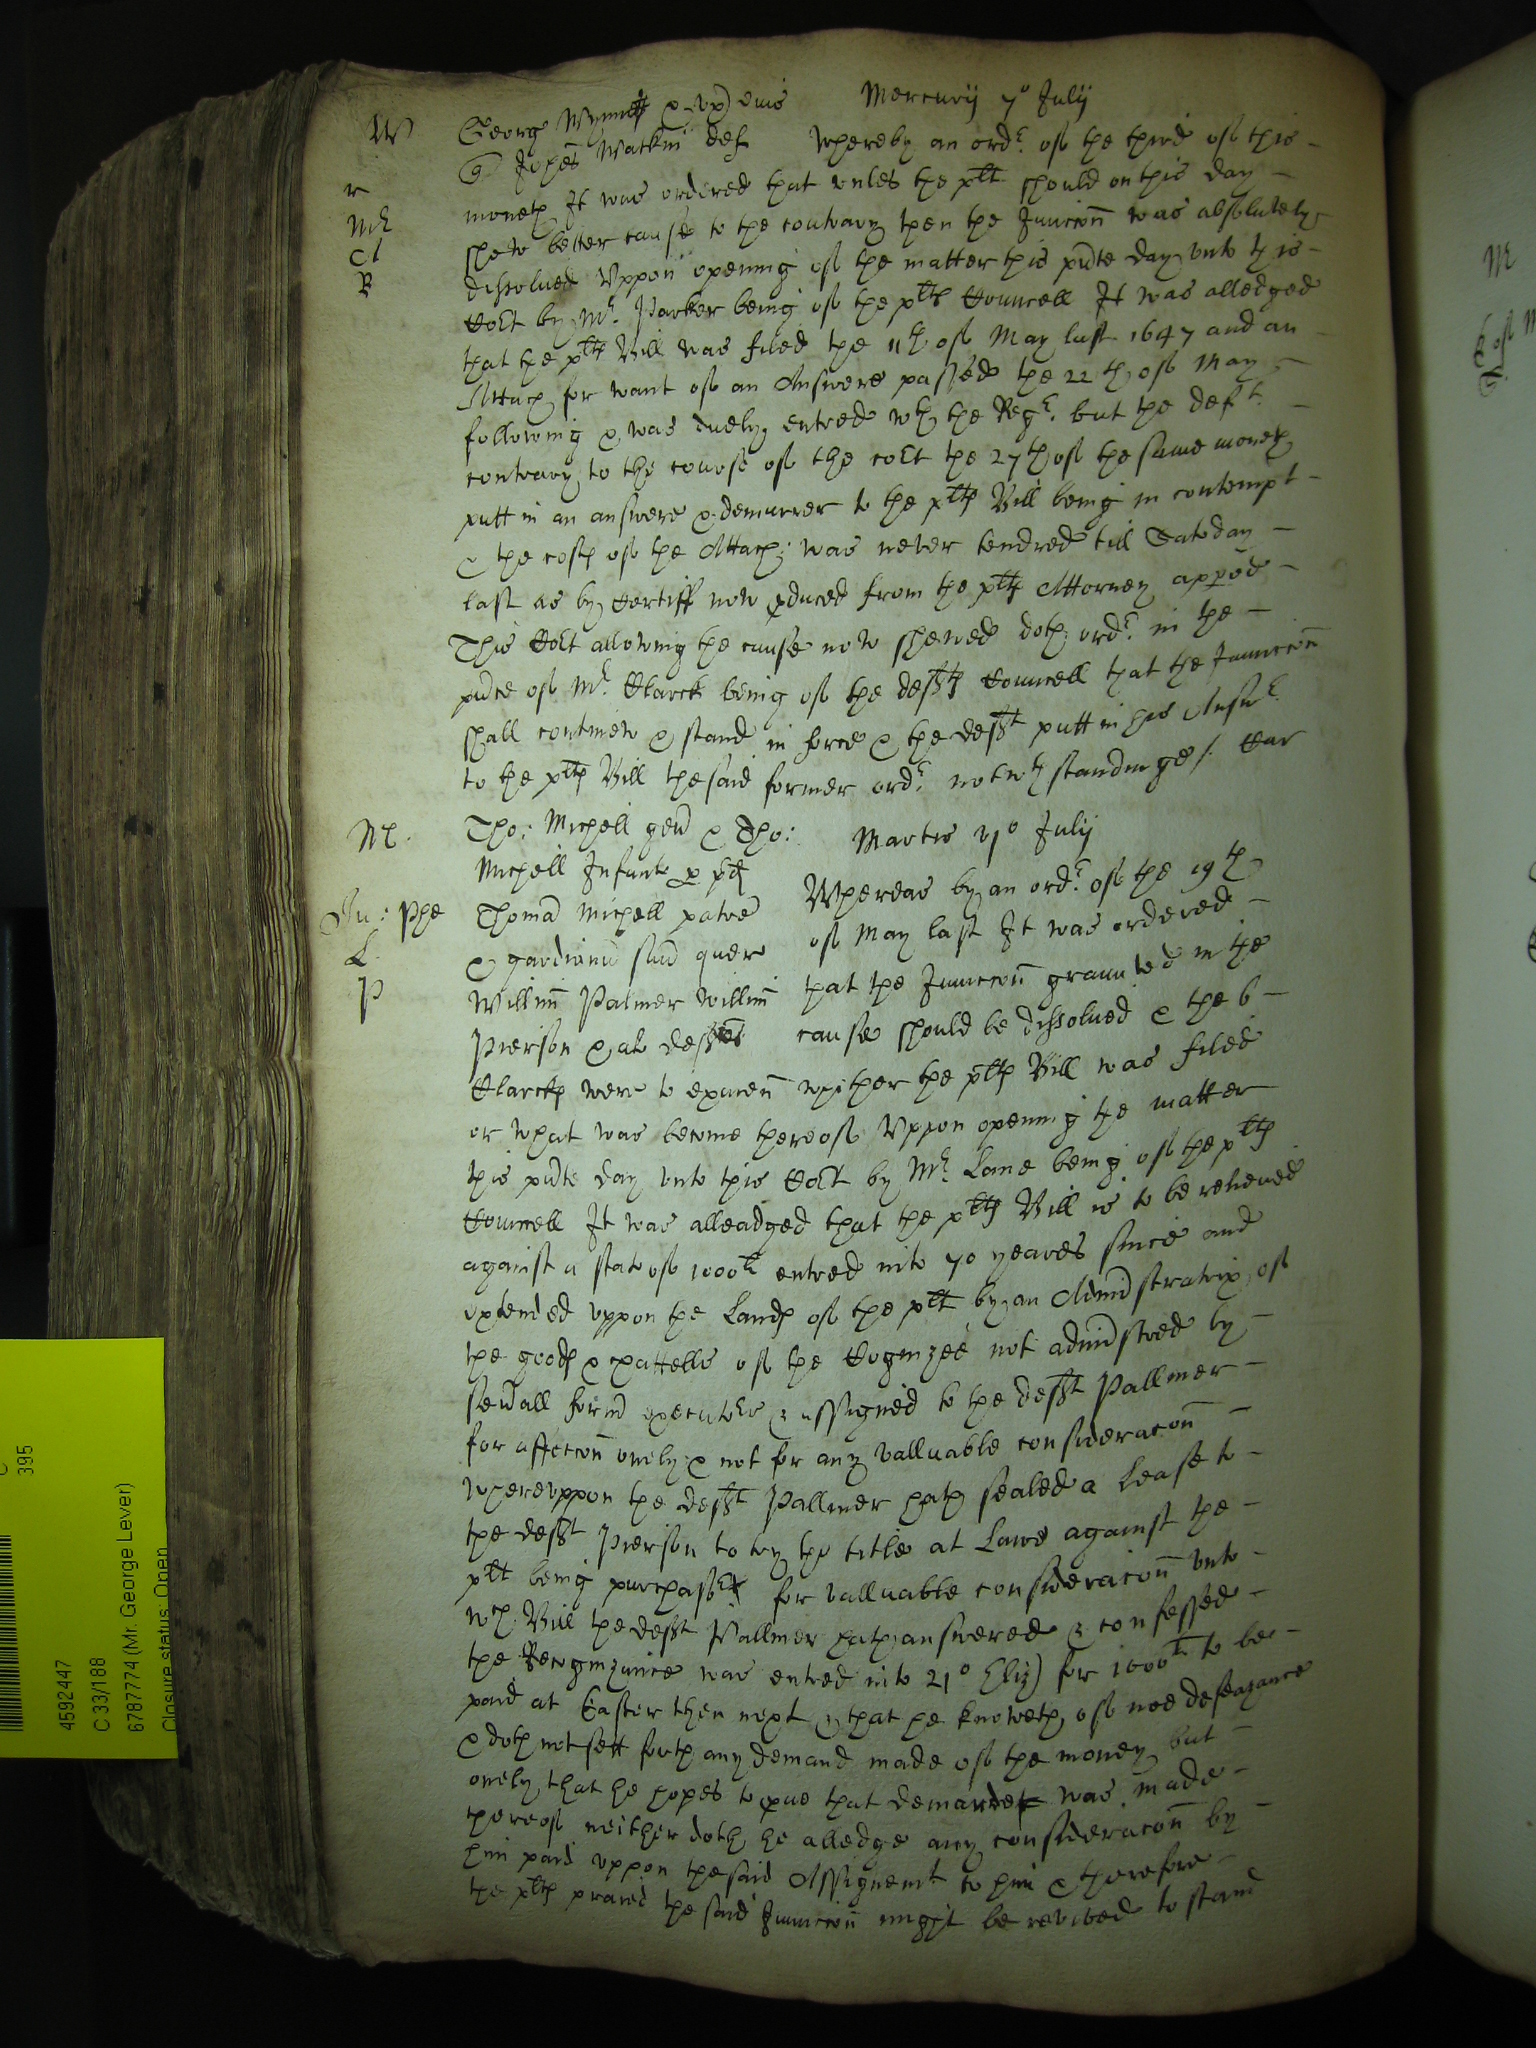 Mercurij 7o Julij
W George Wynne & vx eius
Johes Watkin def Whereby an ordr. of the third of this
r moneth It was ordered that vnles the plt should on this day
Mr shew better cause to the contrary then the Iniuncion was absolutely
Cl dissolued Vppon opening of the matter this pnte day vnto this
R Cort by Mr. Parker being of the plts Councell It was alledged
that the plts Bill was filed the 11th of May last 1647 and an
Attach for want of an Answere passed the 22th of May
following & was duely entred wth the Regr. but the deft.
contrary to the course of the cort the 27th of the same moneth
putt in an answere & demurrer to the plts Bill being in contempt
& the costs of the Attach: was never tendred till Saterday
last as by Certiff now pduced from the plts Attorney appeod
This Cort allowing the cause now shewed doth ordr. in the
pnce of Mr. Clarck being of the defts Councell that the Iniuncion
shall contineu & stand in force & the deft putt in his Answr.
to the plts Bill the said former ordr. notwth standinge /. Car
M. Tho: Michell gen & Tho: Martis Julij
Michell Infants p
Whereas by an ordr. of the 19th
Ju: Phe Thoma Michell patre
of May last It was ordered
L & gardianu suu quer
P Willm Palmer Willm that the Iniuncion graunted in the
Pierson & als defts cause should be dissolued & the 6
Clarcks were to examen whither the plts Bill was filed
or what was become thereof Vppon opening the matter
this pnte day vnto this Cort by Mr Lane being of the plts
Councell It was alleadged that the plts Bill is to be releiued
against a stat of 1000li entred into 70 yeares since and
extended vppon the Lands of the plt by an Administratrix of
the goods & chattells of the Cognizee not administred by
seuall form executors & assigned to the deft Pallmer
for affeccon onely & not for any valluable consideracon
wherevppon the deft Pallmer hath sealed a Lease to
the deft Pierson to try the title at Lawe against the
plt being purchaser for valluable consideracon vnto
wch Bill the deft Pallmer hath answered & confessed
the Recognizance was entred into 21o Eliz) for 1000li to be
paid at Easter then next & that he knoweth of noe defeazance
& doth not sett forth any demand made of the money but
onely that he hopes to pue that demande was made
thereof neither doth he alledge any consideracon by
him paid vppon the said Assignemt to him & therefore
the plts praied the said Iniuncion might be revived to stand
395
4592447
C 33/188
6787774 (Mr. George Lever)
Closure status: Open